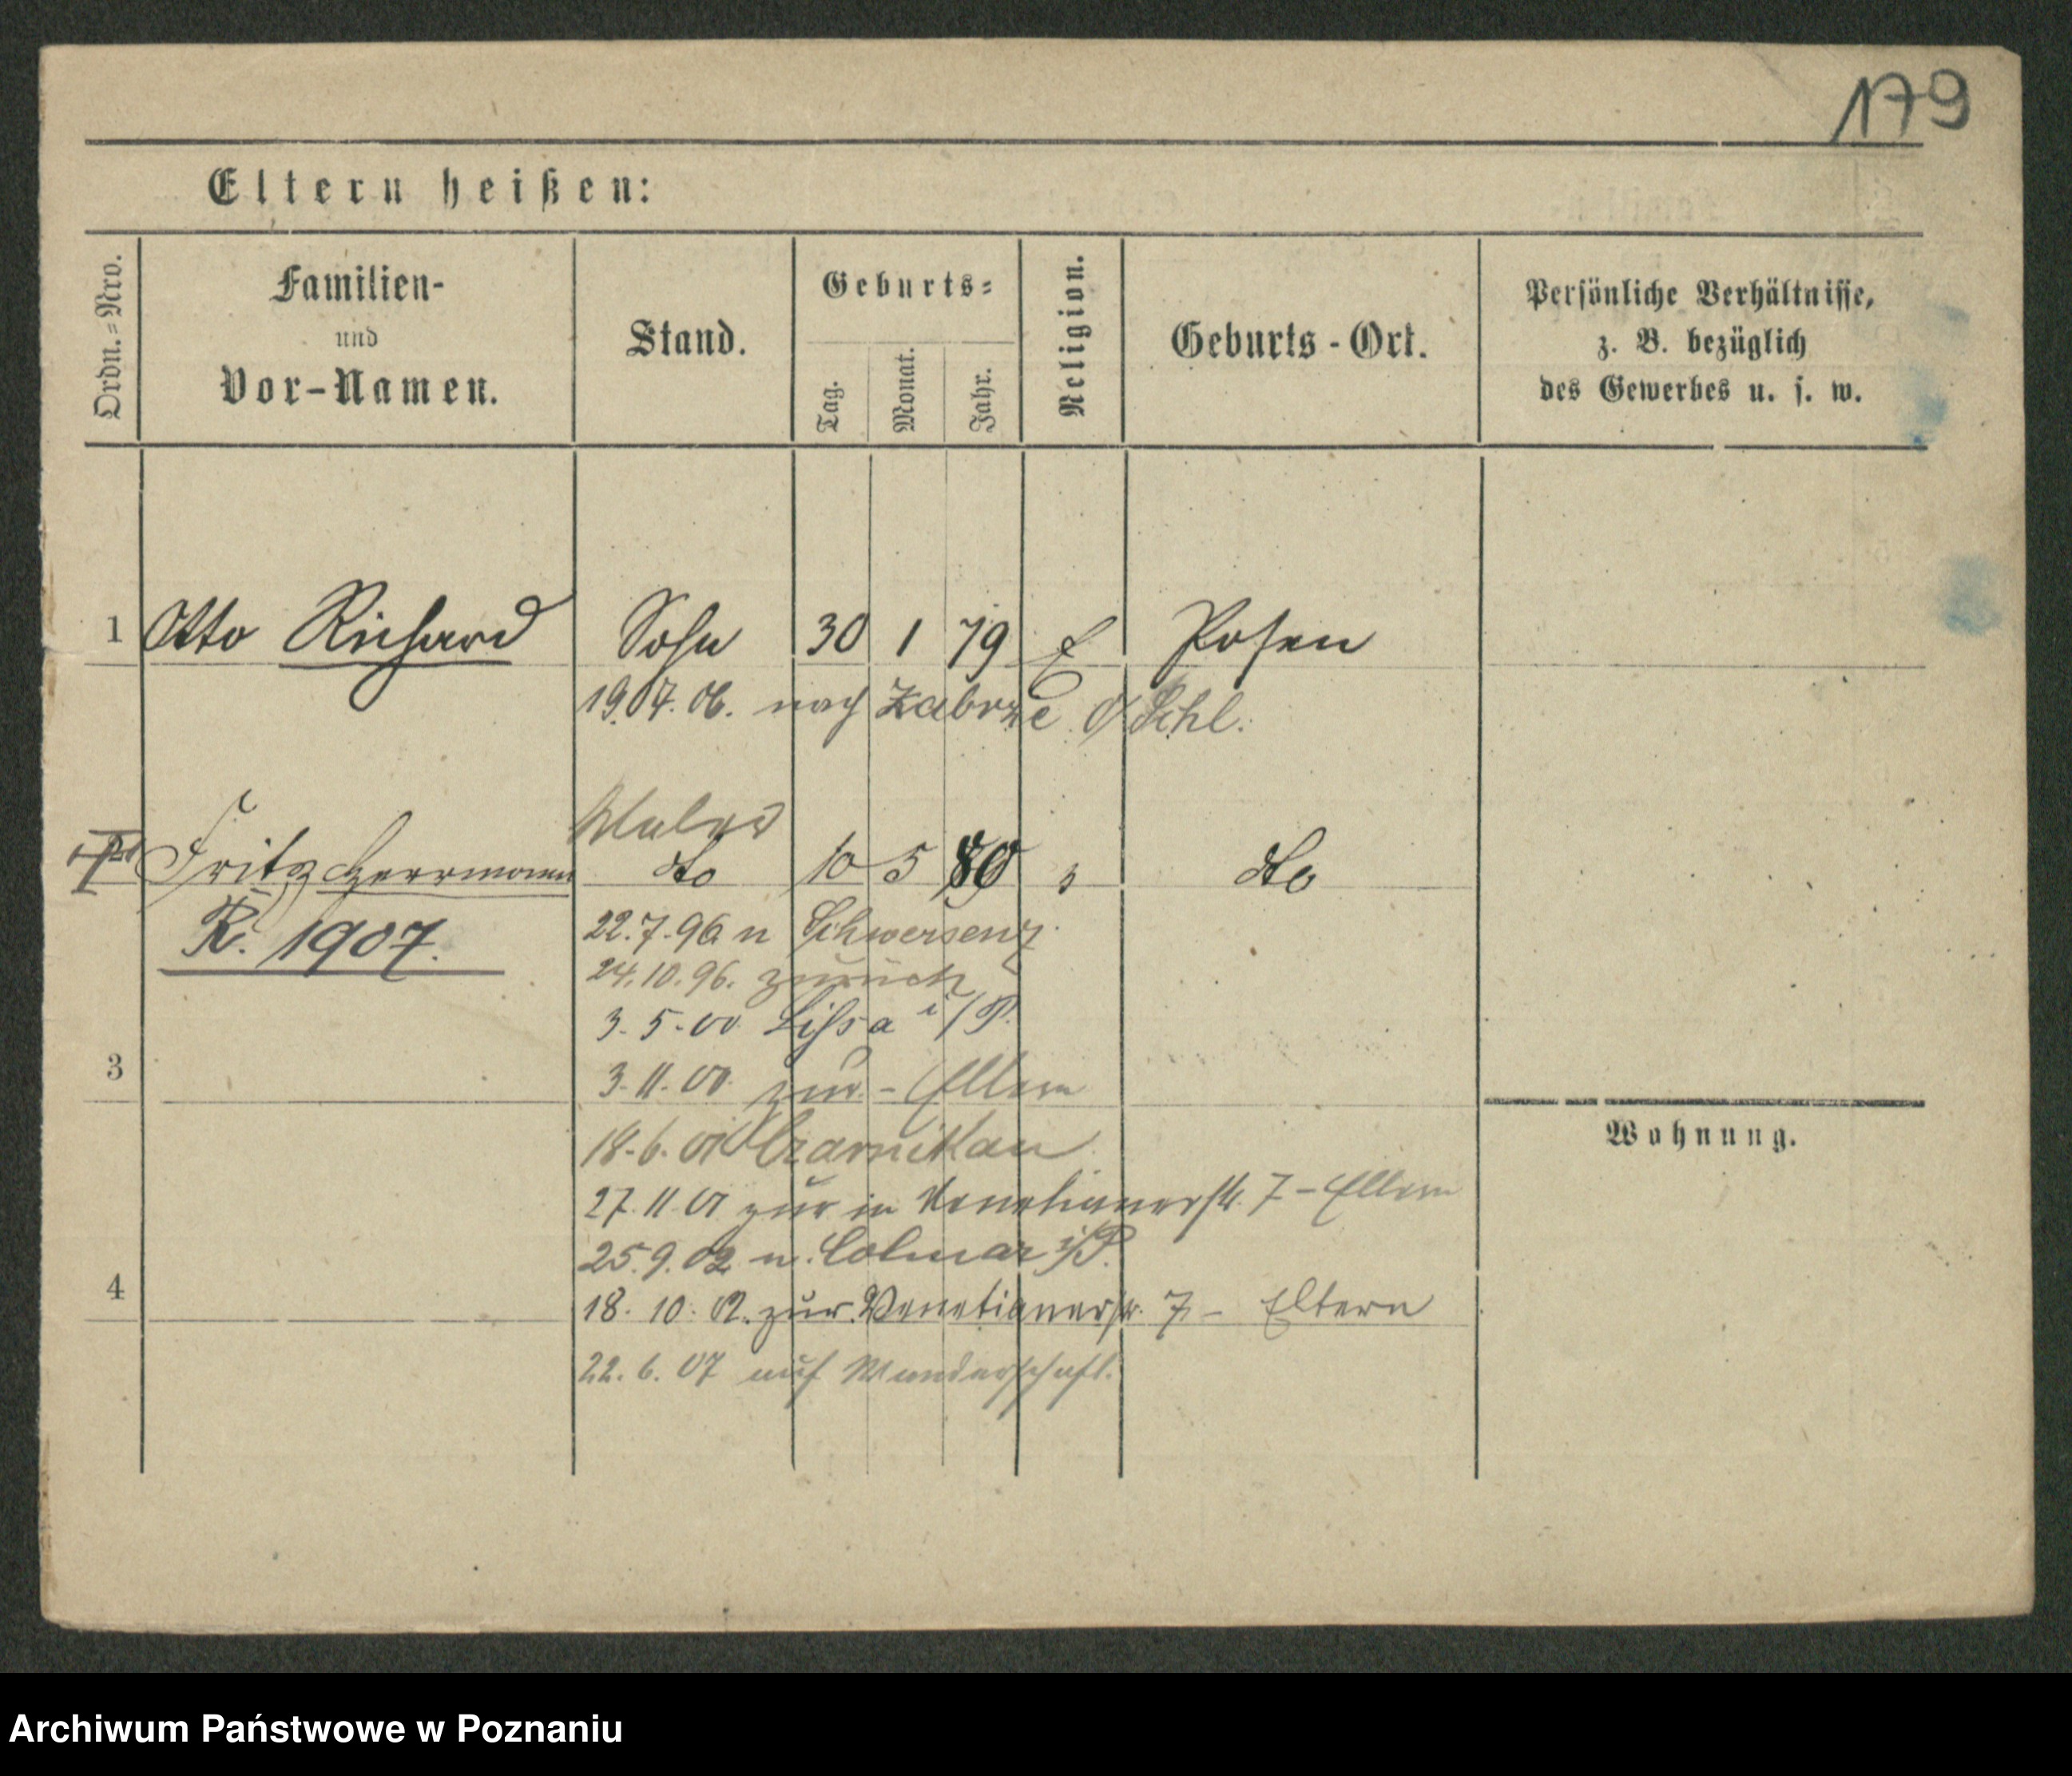 179
Eltern heißen:
Ordn.=Nro.
Familien-
und
Vor-Namen.
Stand.
Geburts=
Tag.
Monat.
Jahr.
Religion.
Geburts-Ort.
Persönliche Verhältnisse,
z. B. bezüglich
des Gewerbes u. s. w.
1 Otto Richard Sohn 30 1 79 E Posen
19.07.06. nach Zabrze O/Schl.
Maler
Fritz Herrmann do 10 5 80 do
R. 1907.
22.7.96 n Schwersenz
24.10.96. zurück
3.5.00 Lissa i/P.
3
3.11.00. zur - Eltern
Wohnung.
18.6.01 Czarnikau
27.11.01 zur in Venetianerstr. 7 - Eltern
25.9.02 n. Colmar i/P.
4
18.10.02. zur. Venetianerstr. 7 - Eltern
22.6.07 auf Wanderschaft.
Archiwum Państwowe w Poznaniu